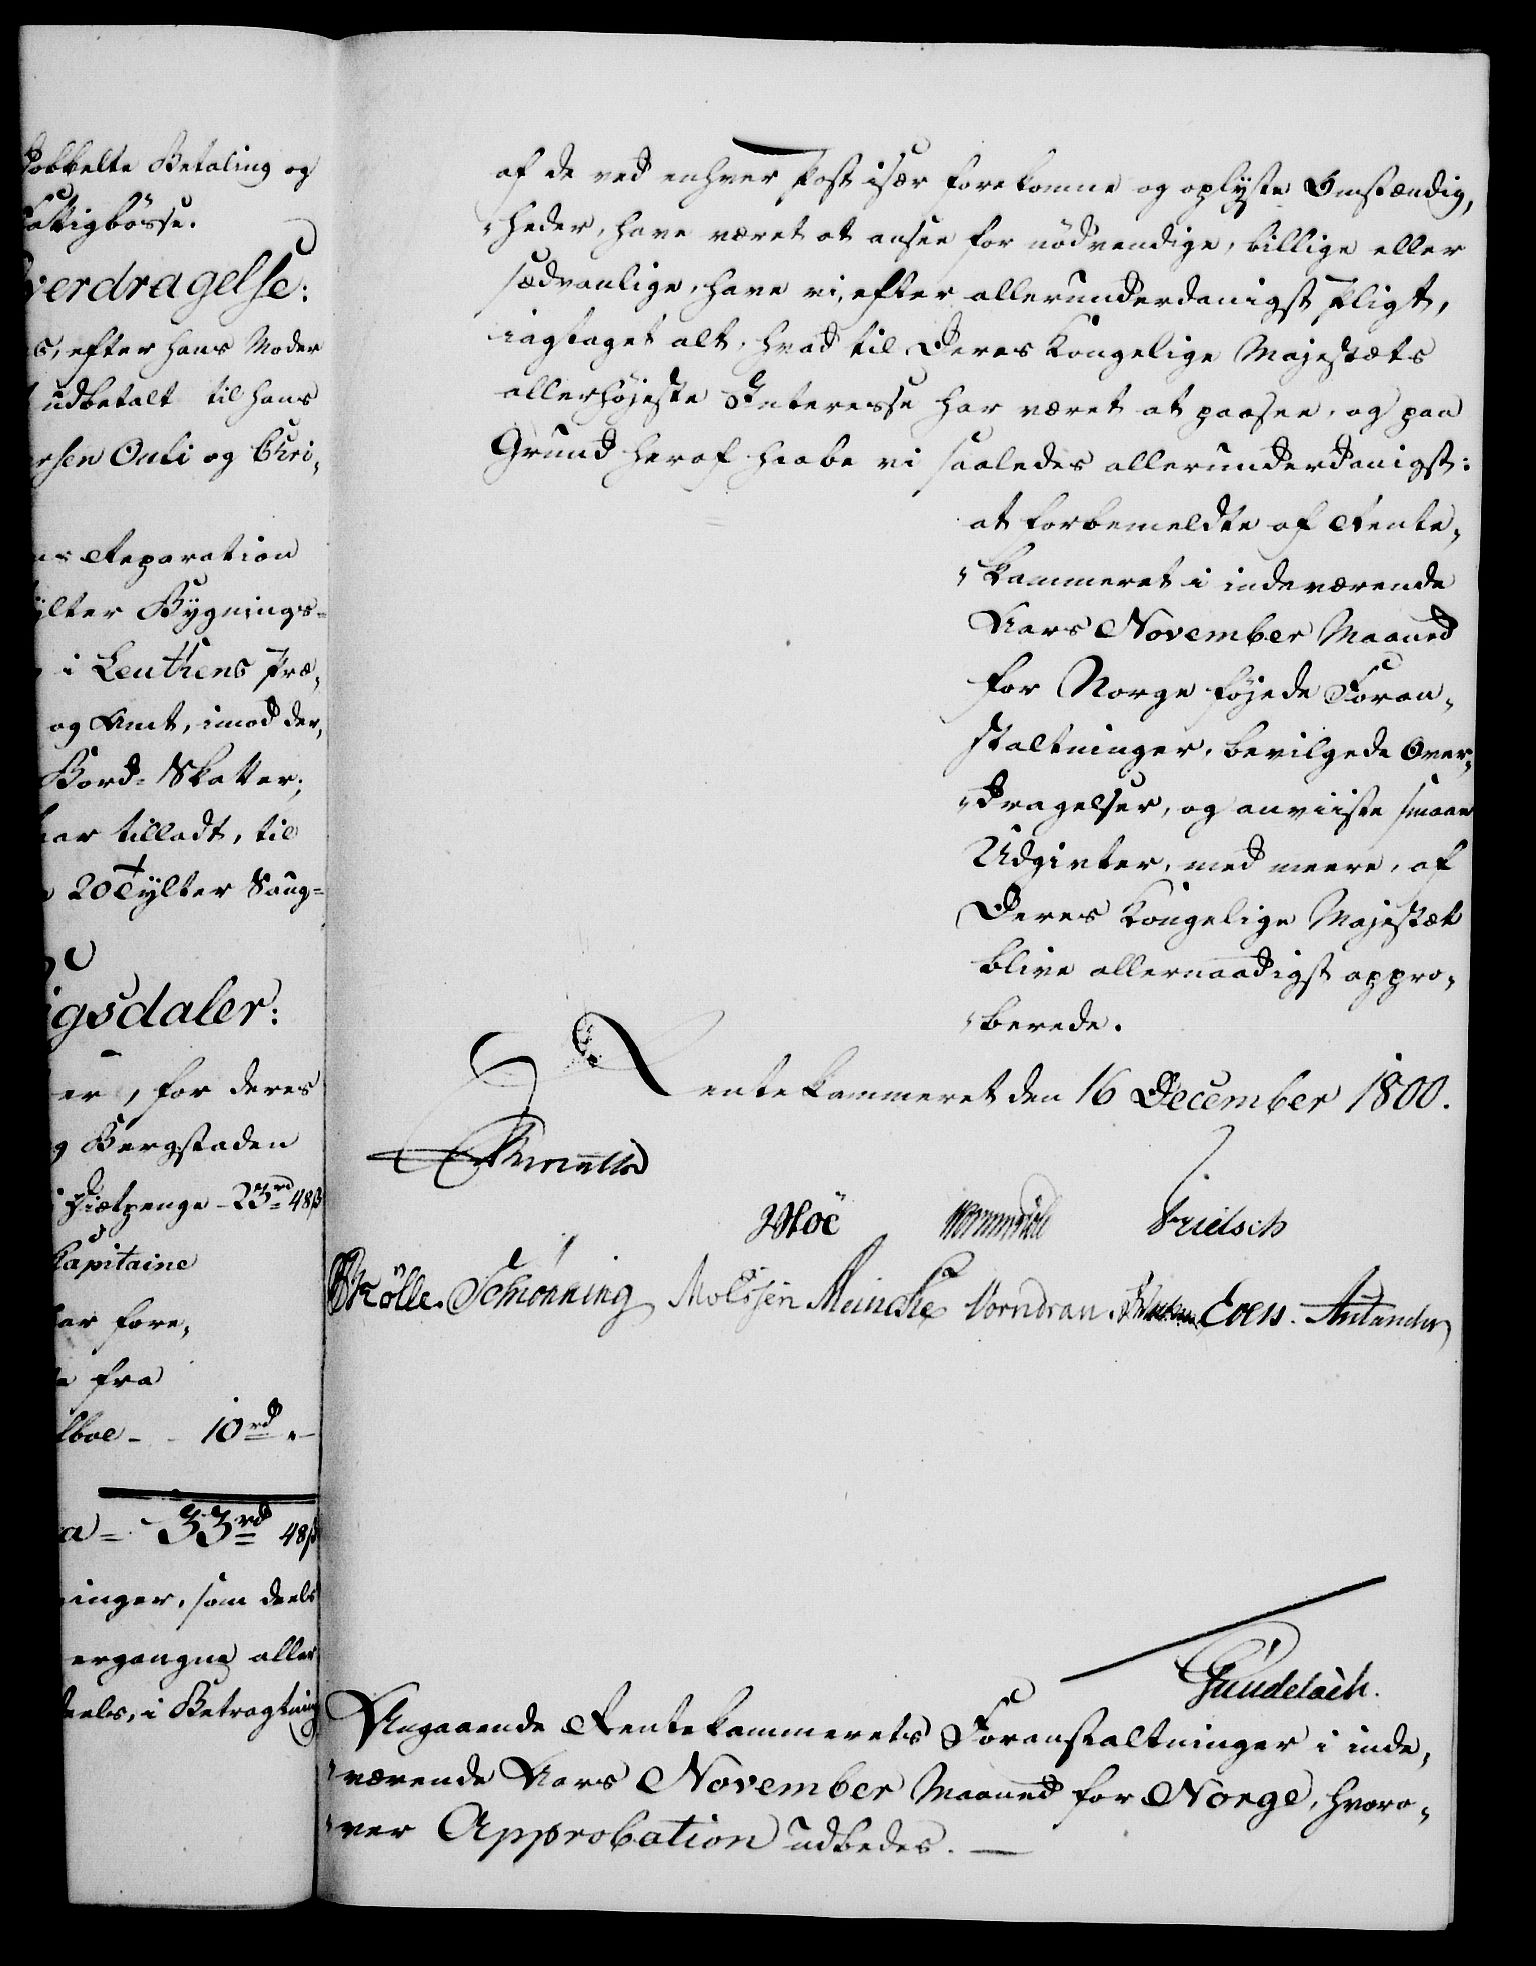 dobbelte Betaling og
Fattigbösse.
verdragelse:
efter hans Moder
udbetalt til hans
rsen Outi og Chri„
Reparation
ylter Bygnings-
i Leuthens Præ„
og Amt, imod der„
Bord-Skatter;
har tilladt, til
20 Tylter Saug-
igsdaler:
er, for deres
Bergstaden
Diætpenge - 23rd 48ß
Capitaine
har fore„
fra
10rd „-
a = 33rd 48ß
ninger, som deels
ergangne aller
deels, i Betragtning
af de ved enhver Post især forekomne og oplyste Omstændig„
„heder, have været at ansee for nödvendige, billige eller
sædvanlige, have vi, efter allerunderdanigst Pligt,
iagtaget alt, hvad til Deres Kongelige Majestæts
allerhöjeste Interesse har været at paasee, og paa
Grund heraf haabe vi saaledes allerunderdanigst:
at forbemeldte af Rente„
„kammeret i indeværende
Aars November Maaned
for Norge föjede Foran„
staltninger, bevilgede Over„
„dragelser, og anviiste smaae
Udgivter, med meere, af
Deres Kongelige Majestæt
blive allernaadigst appro„
„berede.
Rentekammeret den 16 December 1800.
Moë Wormskiold Frielsch
Skölle. Schiønning Molssen Meincke Vorndran. Eoen.
Guudelach.
Angaaende Rentekammerets Foranstaltninger i inde„
„værende Aars November Maaned for Norge, hvoro„
„ver Approbation udbedes. —